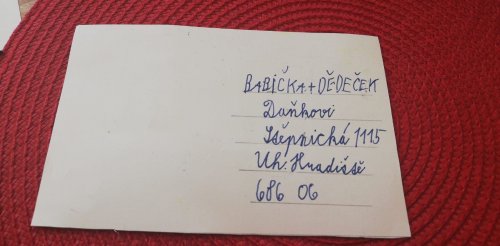 BABIČKA+DĚDEČEK
Daňkovi
Štěpnická 1115
Uh. Hradiště
686 06